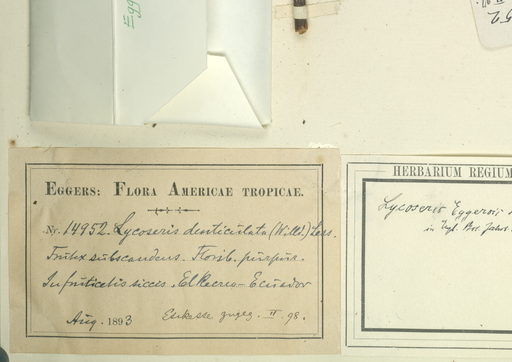 Egg
52
EGGERS: FLORA AMERICAE TROPICAE.
Nr. 14952. Lycoseris denticulata (Willd.) Less.
Frutex subscandens. Florib. purpur.
In fruticetis siccis. El Recreo - Ecuador
Aug. 1893
II. 98.
HERBARIUM REGIUM
Lycoseris Eggersii
in Engl. Bot. Jahrb.